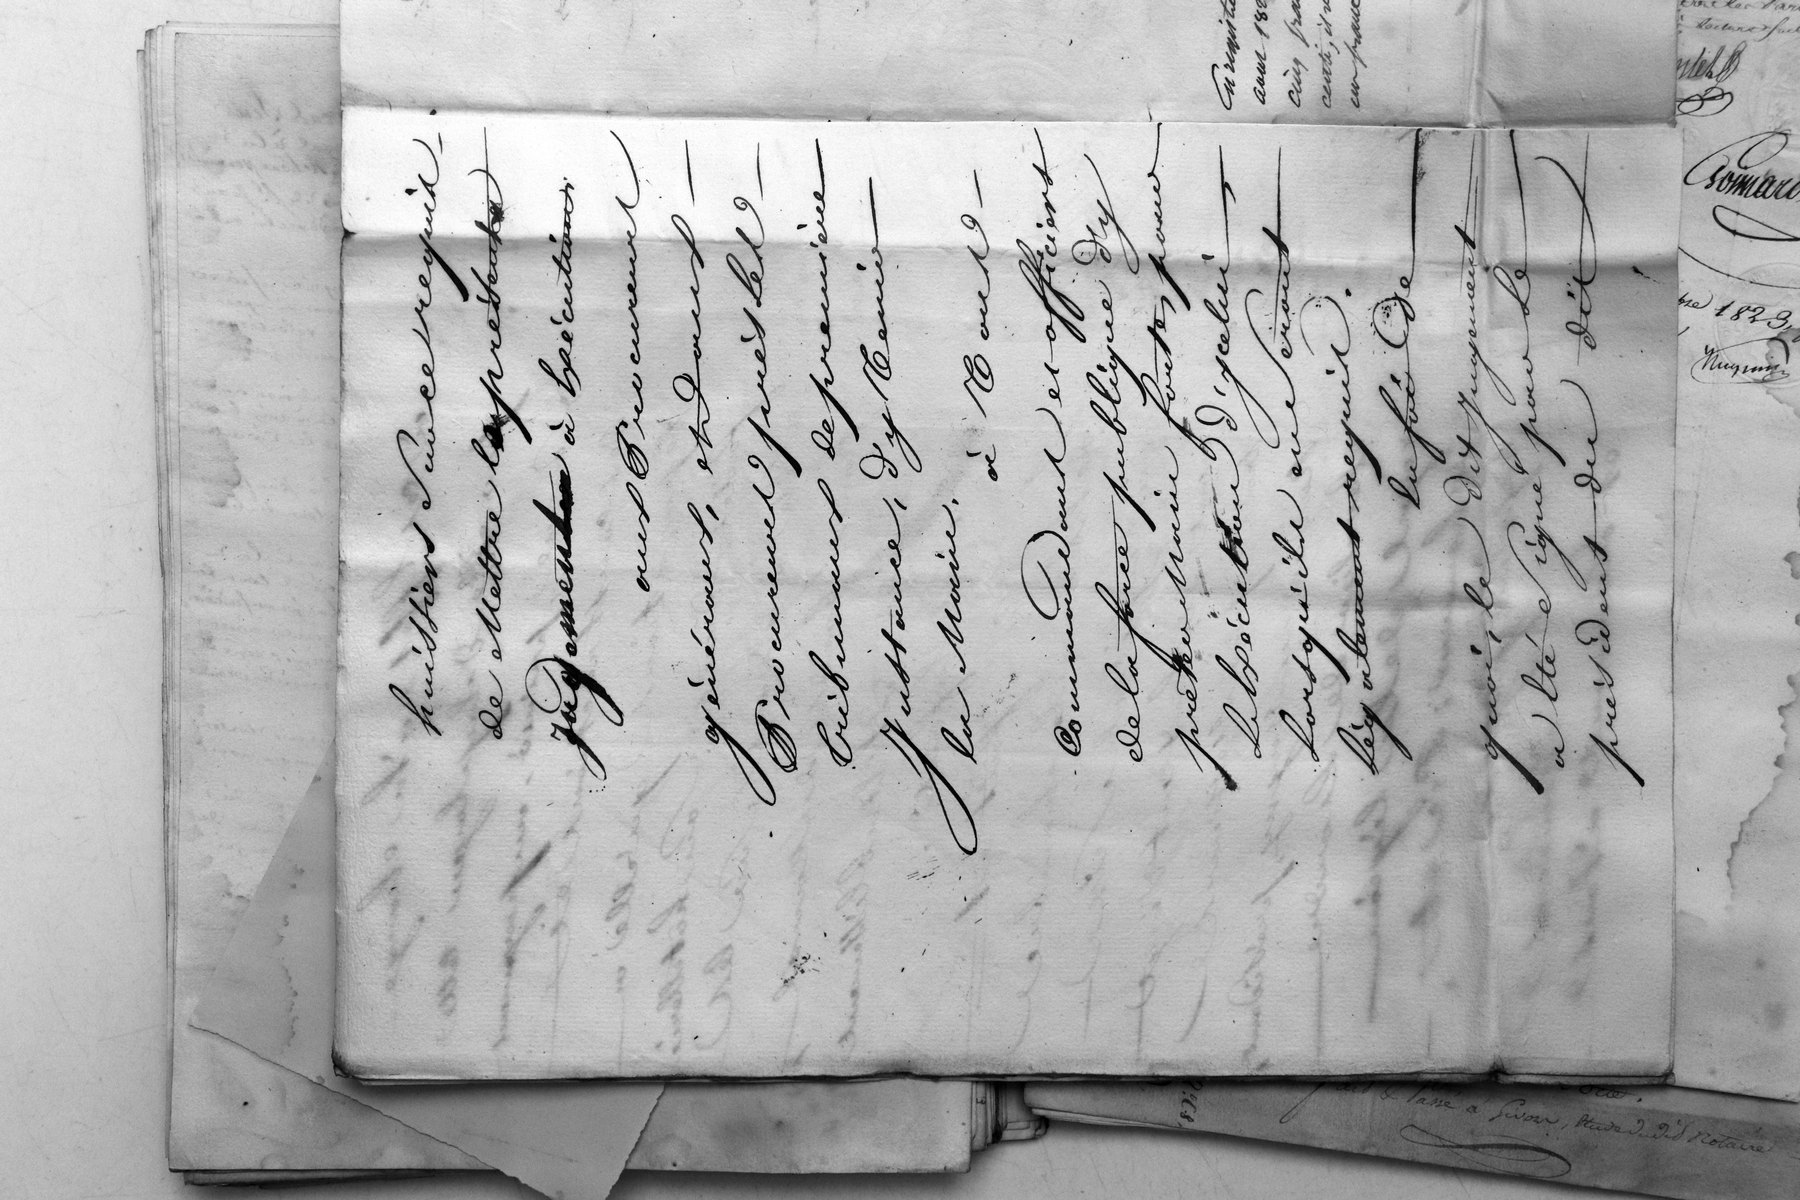 huissiers sur ce requis
de Mettre le présent
Jugement à Exécution
aux Procureurs
généraux, et Dans
Procureurs près les
tribunaux de première
Instance, d'y tenir
la Main.
à Tous
Commandants et officiers
de la force publique d'y
prêter Main forte, pour
L'Exécution D'ycelui
Lorsqu'ils en Seront
Légalement requis.
En foi De
quoi, le Dit Jugement
a Eté Signé par le
président du dit
avril 182
cinq fra
un franc
Bonnard
bre 1823,
fait & Passé à Givors, Etude dudit Notaire